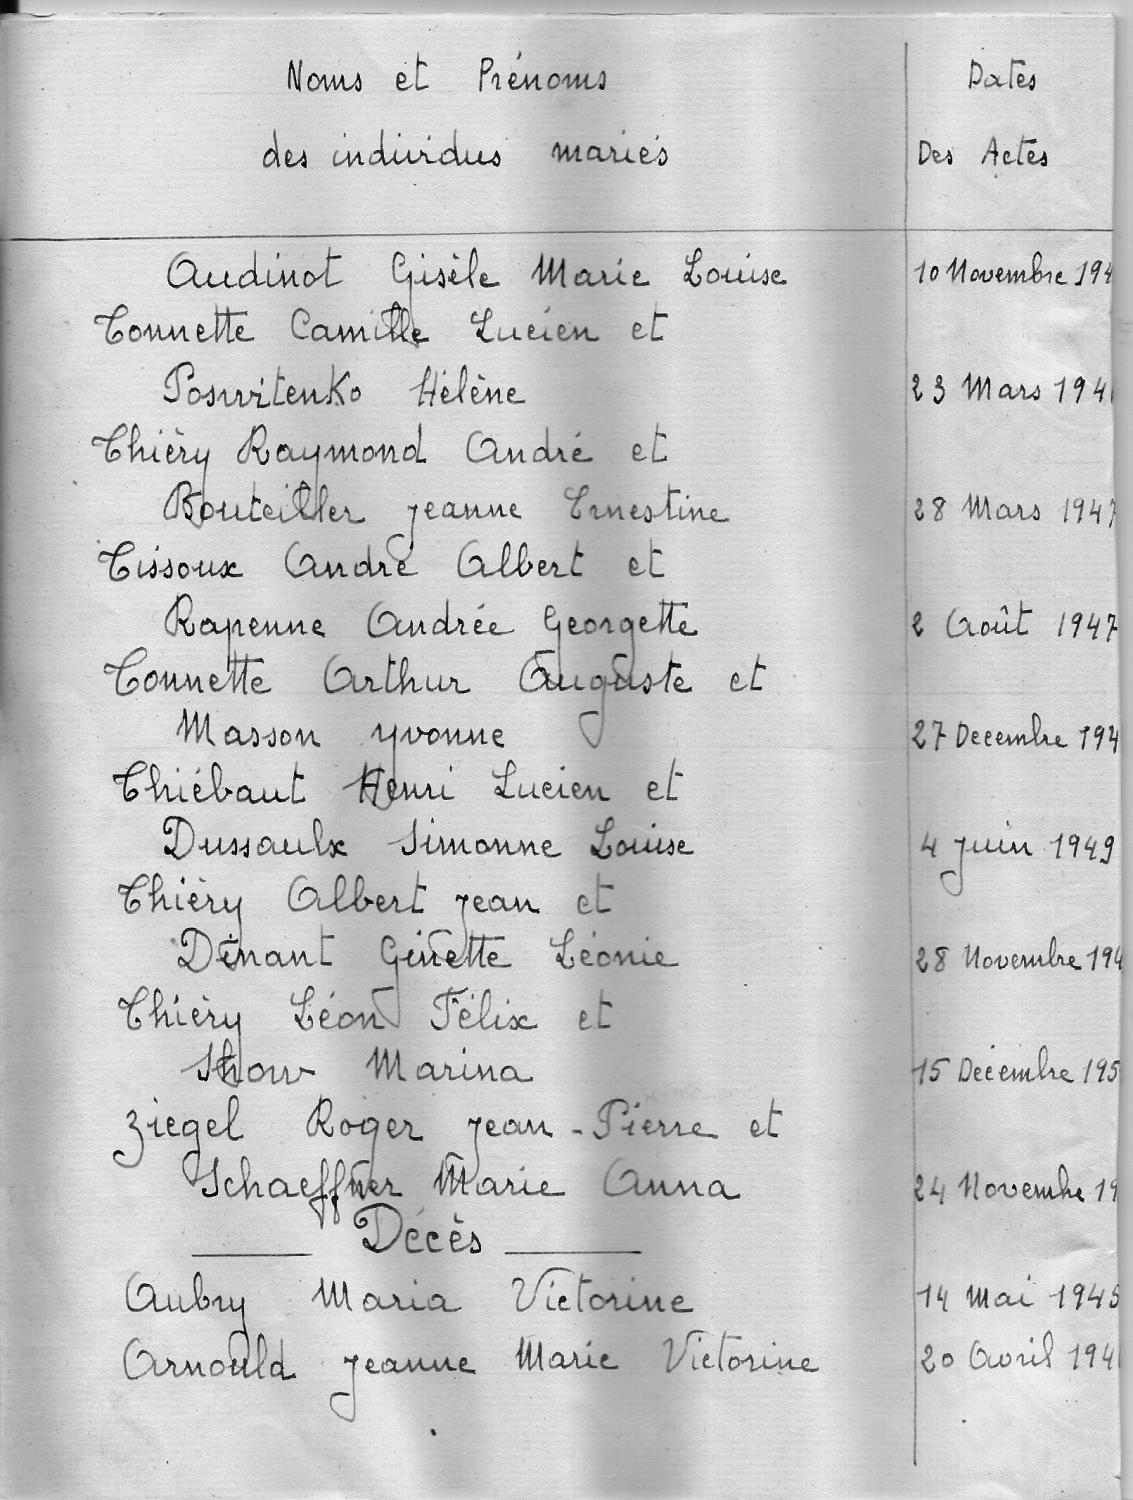 Noms et Prénoms Dates
des individus mariés Des Actes
Audinot Gisèle Marie Louise 10 Novembre 194
Tonnette Camille Lucien et
Poswitenko Hélène 23 Mars 194
Thiéry Raymond André et
Bouteiller Jeanne Ernestine 28 Mars 1947
Tissoux André Albert et
Rapenne Andrée Georgette 2 Août 1947
Tonnette Arthur Auguste et
Masson Yvonne 27 Decembre 194
Thiébaut Henri Lucien et
Dussaulx Simonne Louise 4 Juin 1949
Thiéry Albert Jean et
Dinant Ginette Léonie 28 Novembre 194
Thiéry Léon Félix et
Marina 15 Décembre 195
Ziegel Roger Jean-Pierre et
Schaeffner Marie Anna 24 Novembre 19
Décès
Aubry Maria Victorine 14 Mai 1945
Arnould Jeanne Marie Victorine 20 Avril 194